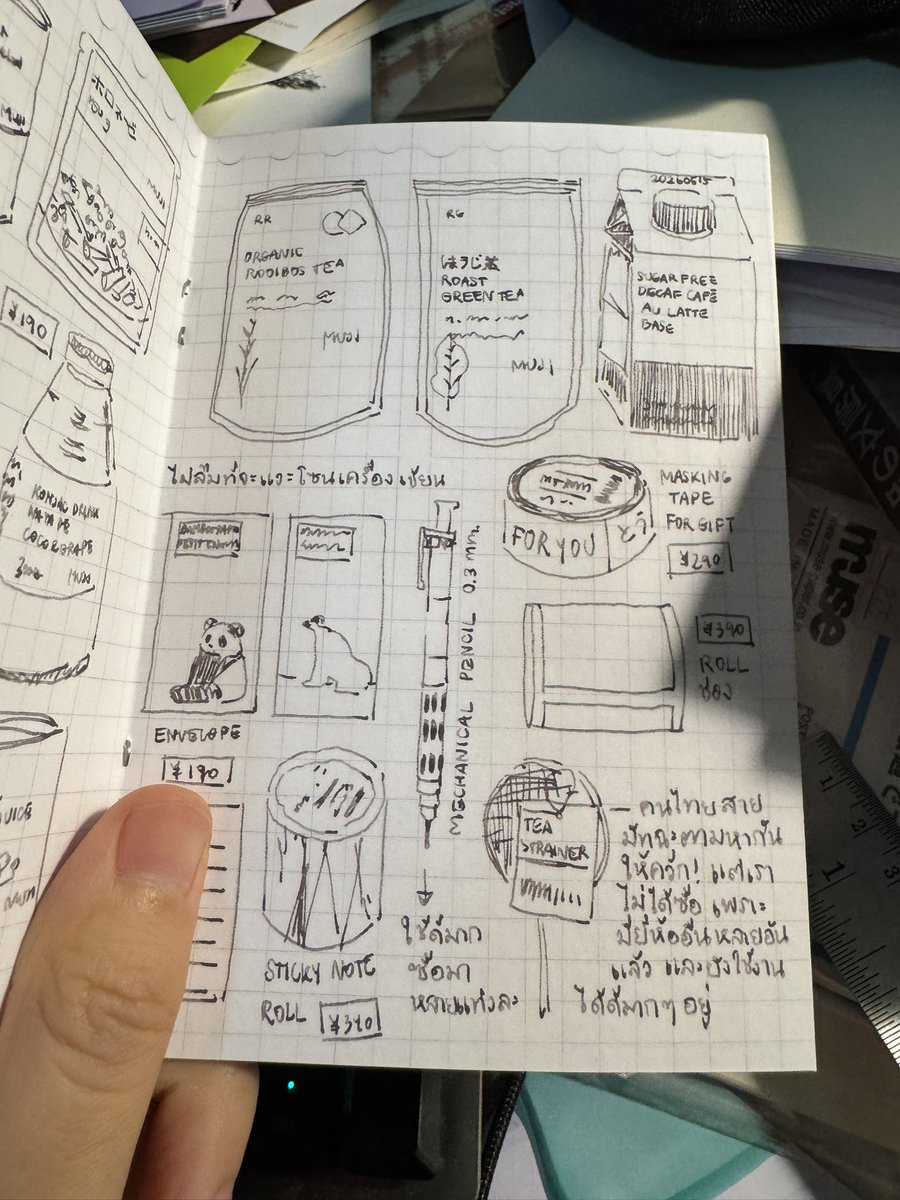 ボロネーゼ
100g
MUJI
¥190
KONJAC DRINK
NATA DE
COCO GRAPE
MUJI
RR
ORGANIC
ROOIBOS TEA
MUJI
RG
ほうじ茶
ROAST
GREEN TEA
MUJI
20260515
SUGAR FREE
DECAF CAFÉ
AU LATTE
BASE
ไม่ลืมที่จะแวะโซนเครื่องเขียน
ENVELOPE
¥190
MECHANICAL PENCIL 0.3 mm
ใช้ดีมาก
ซื้อมา
หลายแท่งละ
FOR YOU
MASKING
TAPE
FOR GIFT
¥290
¥390
ROLL
ซอง
STICKY NOTE
ROLL ¥390
TEA
STRAINER
คนไทยสาย
มัทฉะตามหากัน
ให้ควั่ก! แต่เรา
ไม่ได้ซื้อ เพราะ
มียี่ห้ออื่นหลายอัน
แล้ว และยังใช้งาน
ได้ดีมากๆ อยู่
muse
MADE
1
2
3